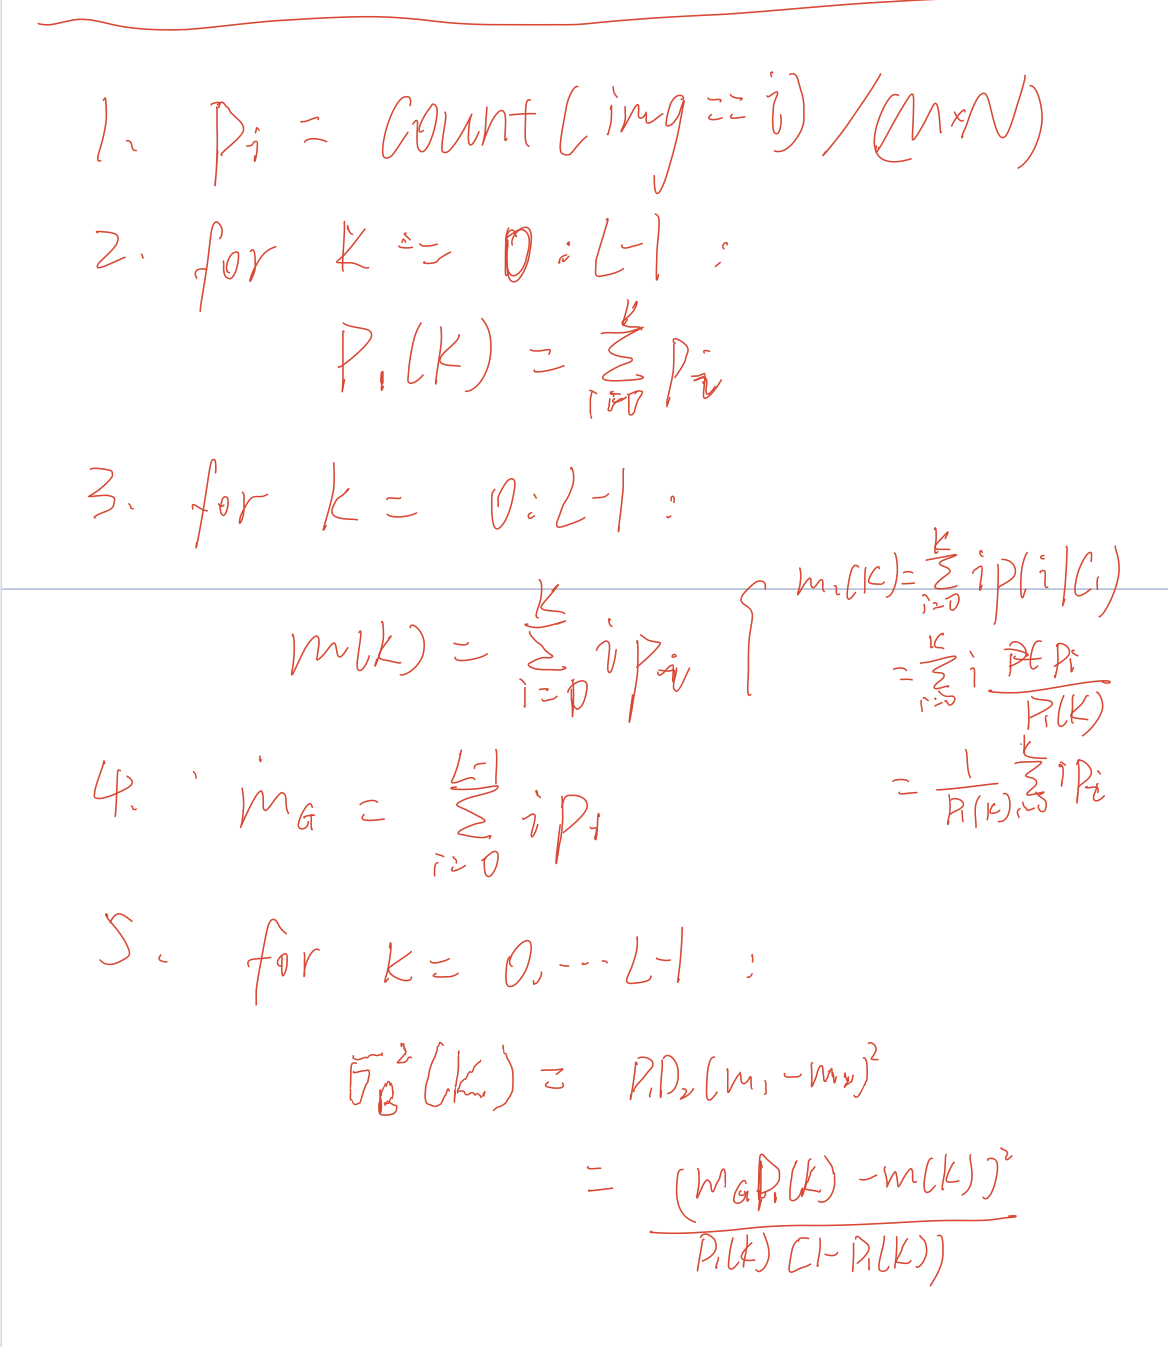 1. pᵢ = count(img == i) / (M×N)
2. for k = 0 : L-1 :
P₁(k) = Σᵢ₌₀ᵏ pᵢ
3. for k = 0 : L-1 :
m(k) = Σᵢ₌₀ᵏ i pᵢ
{ m₁(k) = Σᵢ₌₀ᵏ i p(i|C₁)
= Σᵢ₌₀ᵏ i pᵢ / P₁(k)
= 1/P₁(k) Σᵢ₌₀ᵏ i pᵢ
4. m_G = Σᵢ₌₀ᴸ⁻¹ i pᵢ
5. for k = 0, ... L-1 :
σ_B²(k) = P₁P₂(m₁ - m₂)²
= (m_G P₁(k) - m(k))² / P₁(k)(1 - P₁(k))